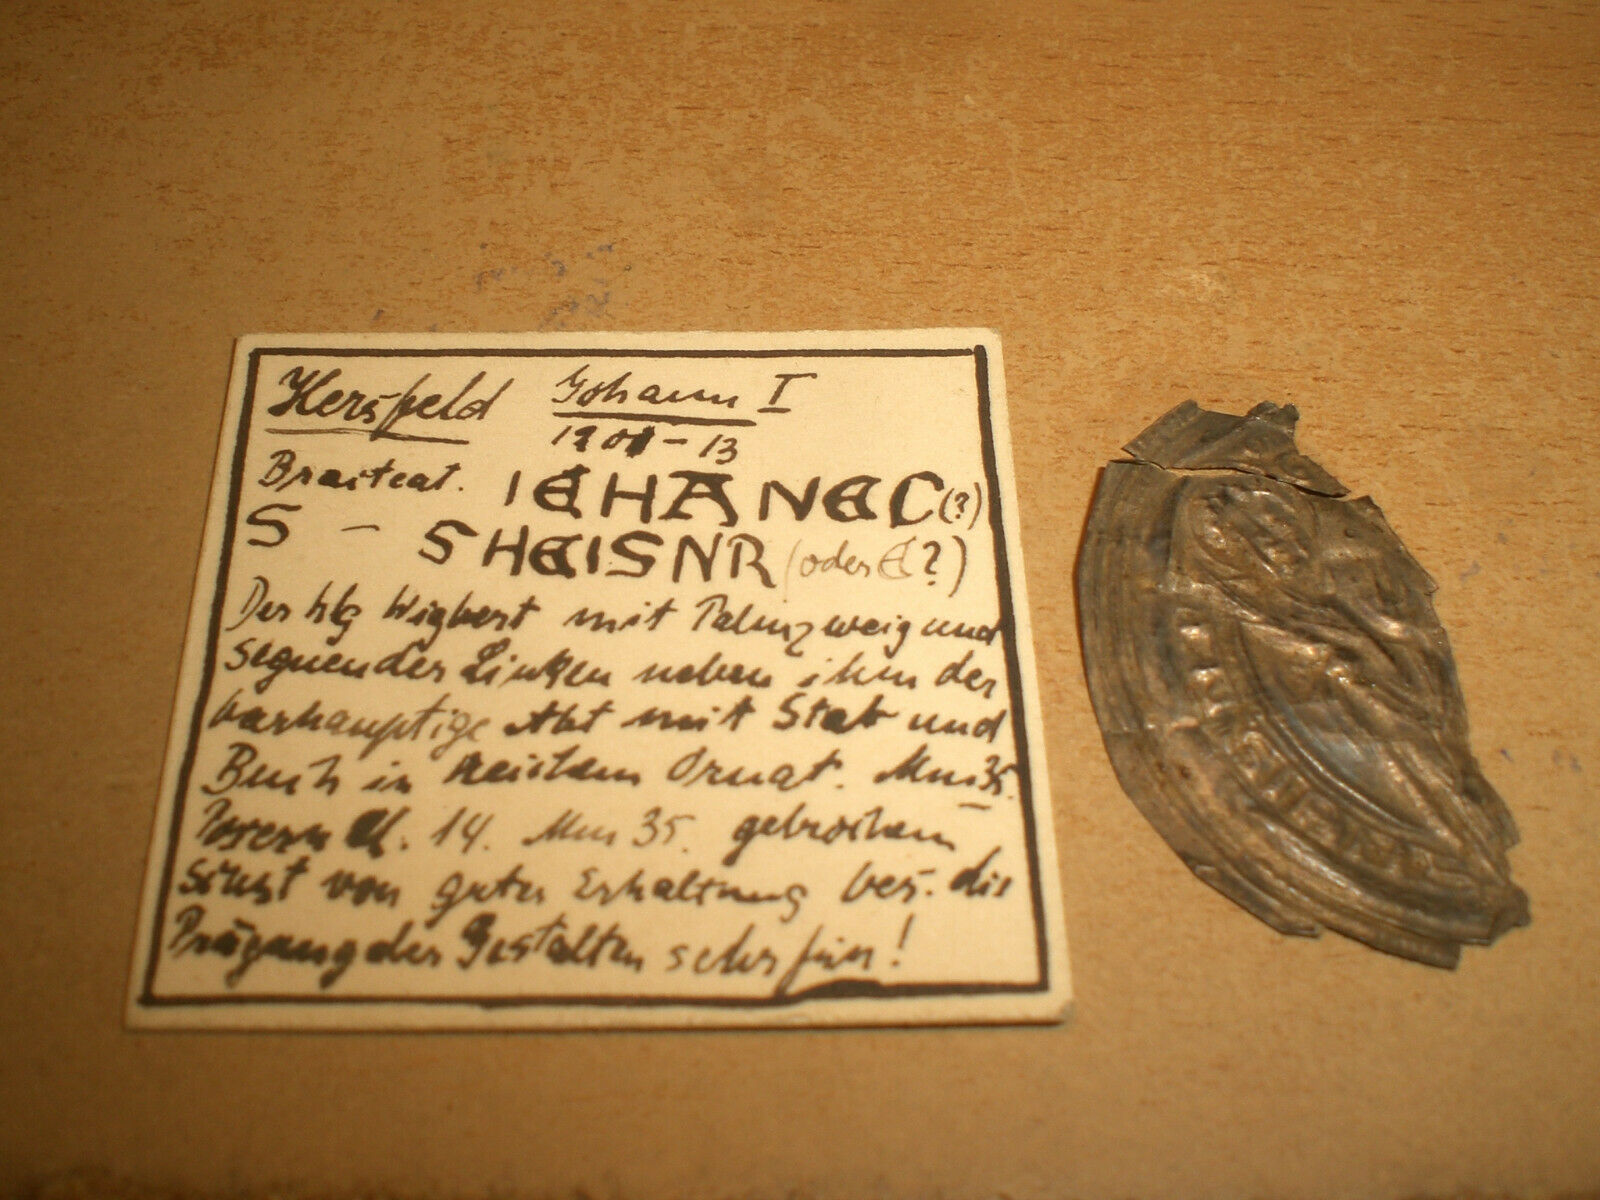 Hersfeld Johann I
1201-13
Bracteat. IEHANEC(?)
S - SHEISNR (oder E?)
Der hlg Wigbert mit Palmzweig und
segnender Linken neben ihm der
barhauptige Abt mit Stab und
Buch in reichem Ornat. Mm 35.
Posern 14. Mm 35. gebrochen
sonst von guter Erhaltung bes. die
Prägung der Gestalten sehr fein!